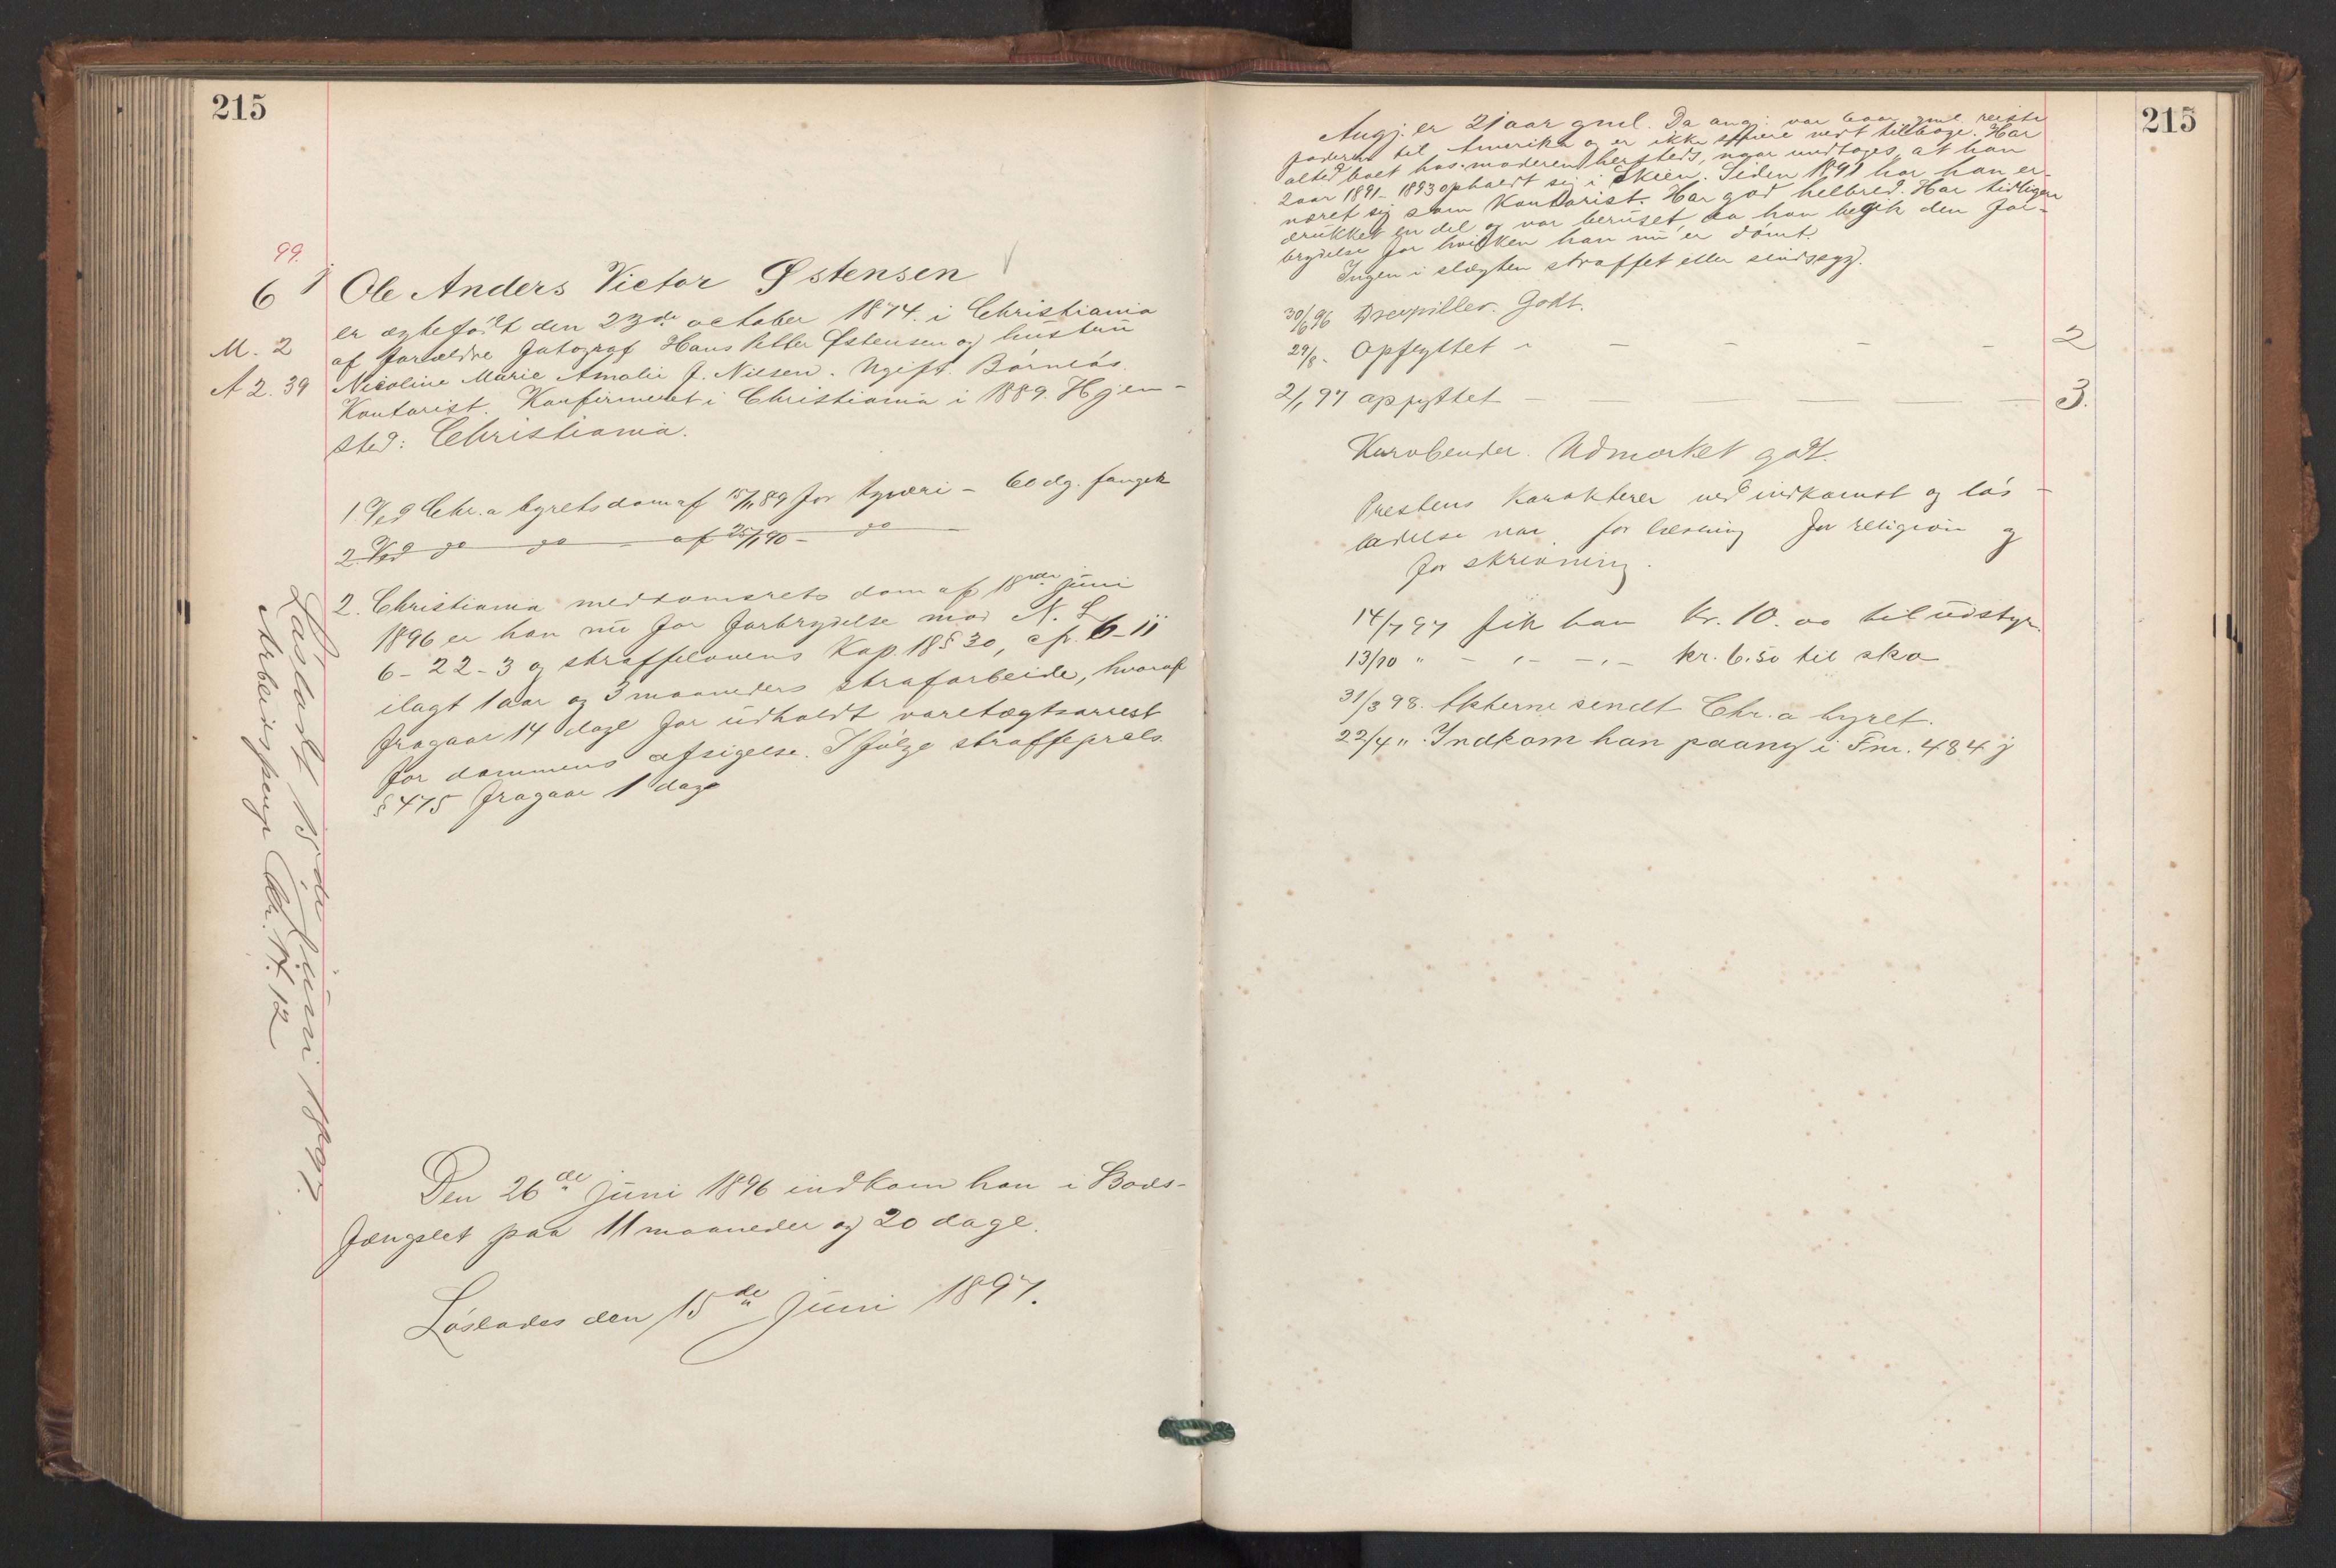 215
99.
6 j Ole Anders Victor Østensen
er ægtefødt den 23de october 1874. i Christiania
M. 2 af forældre fotograf Hans Petter Østensen og hustru
A 2. 39 Nicoline Marie Amalie f. Nilsen. Ugift. Børnløs.
Kontorist. Konfirmeret i Christiania i 1889. Hjem-
sted: Christiania.
1. Ved Chr.a byretsdom af 15/11 89 for tyveri - 60 dg. fængsk
2 Ved do do - af 25/1 90 - do
2. Christiania meddomsrets dom af 18nde juni
1896 er han nu for forbrydelse mod N. L
6-22-3 og straffelovens Kap. 18 § 30, cfr. 6-11
ilagt 1 aar og 3 maaneders strafarbeide, hvoraf
fragaar 14 dage for udholdt varetægtsarrest
før dommens afsigelse. Ifølge straffeprels
§ 475 fragaar 1 dage
Løsladt 15de Juni 1897.
Arbeidspenge Kr. 17.12
Den 26de juni 1896 indkom han i Bods-
fængslet paa 11 maaneder og 20 dage.
Løslades den 15de Juni 1897.
215
Angj. er 21 aar gml. Da angj. var 6 aar gml. reiste
faderen til Amerika og er ikke senere vendt tilbage. Har
altid boet hos moderen hersteds, naar undtages, at han
2 aar 1891-1893 opholdt sig i Skien. Siden 1891 har han er-
næret sig som Kontorist. Har god helbred. Har tidligere
drukket en del og var beruset da han begik den for-
brydelse for hvilken han nu er dømt.
Ingen i slægten straffet eller sindssyg.
30/6 96 Drevpiller. Godt.
29/8 - Opflyttet - - - - - 2
2/1 97 opflyttet - - - - - 3.
Kurvbender. Udmærket godt.
Prestens karakterer ved indkomst og løs-
ladelse var for læsning for religion og
for skrivning.
14/7 97 fik han kr. 10.00 til udstyr.
13/10 " - " - " - kr. 6.50 til sko
31/3 98. Akterne sendt Chr.a byret.
22/4 ". Indkom han paany i Fnr. 484 j